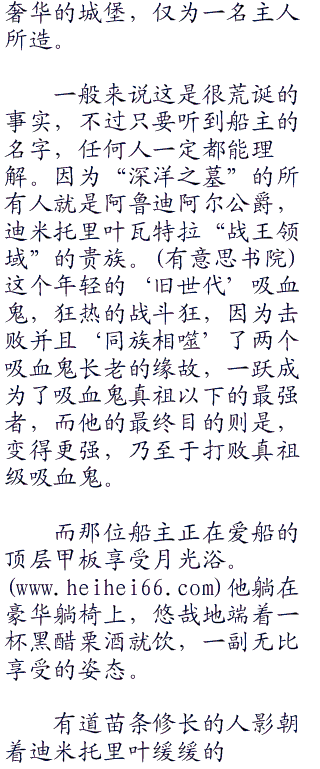 奢华的城堡，仅为一名主人
所造。
一般来说这是很荒诞的
事实，不过只要听到船主的
名字，任何人一定都能理
解。因为“深洋之墓”的所
有人就是阿鲁迪阿尔公爵，
迪米托里叶瓦特拉“战王领
域”的贵族。(有意思书院)
这个年轻的‘旧世代’吸血
鬼，狂热的战斗狂，因为击
败并且‘同族相噬’了两个
吸血鬼长老的缘故，一跃成
为了吸血鬼真祖以下的最强
者，而他的最终目的则是，
变得更强，乃至于打败真祖
级吸血鬼。
而那位船主正在爱船的
顶层甲板享受月光浴。
(www.heihei66.com)他躺在
豪华躺椅上，悠哉地端着一
杯黑醋栗酒就饮，一副无比
享受的姿态。
有道苗条修长的人影朝
着迪米托里叶缓缓的